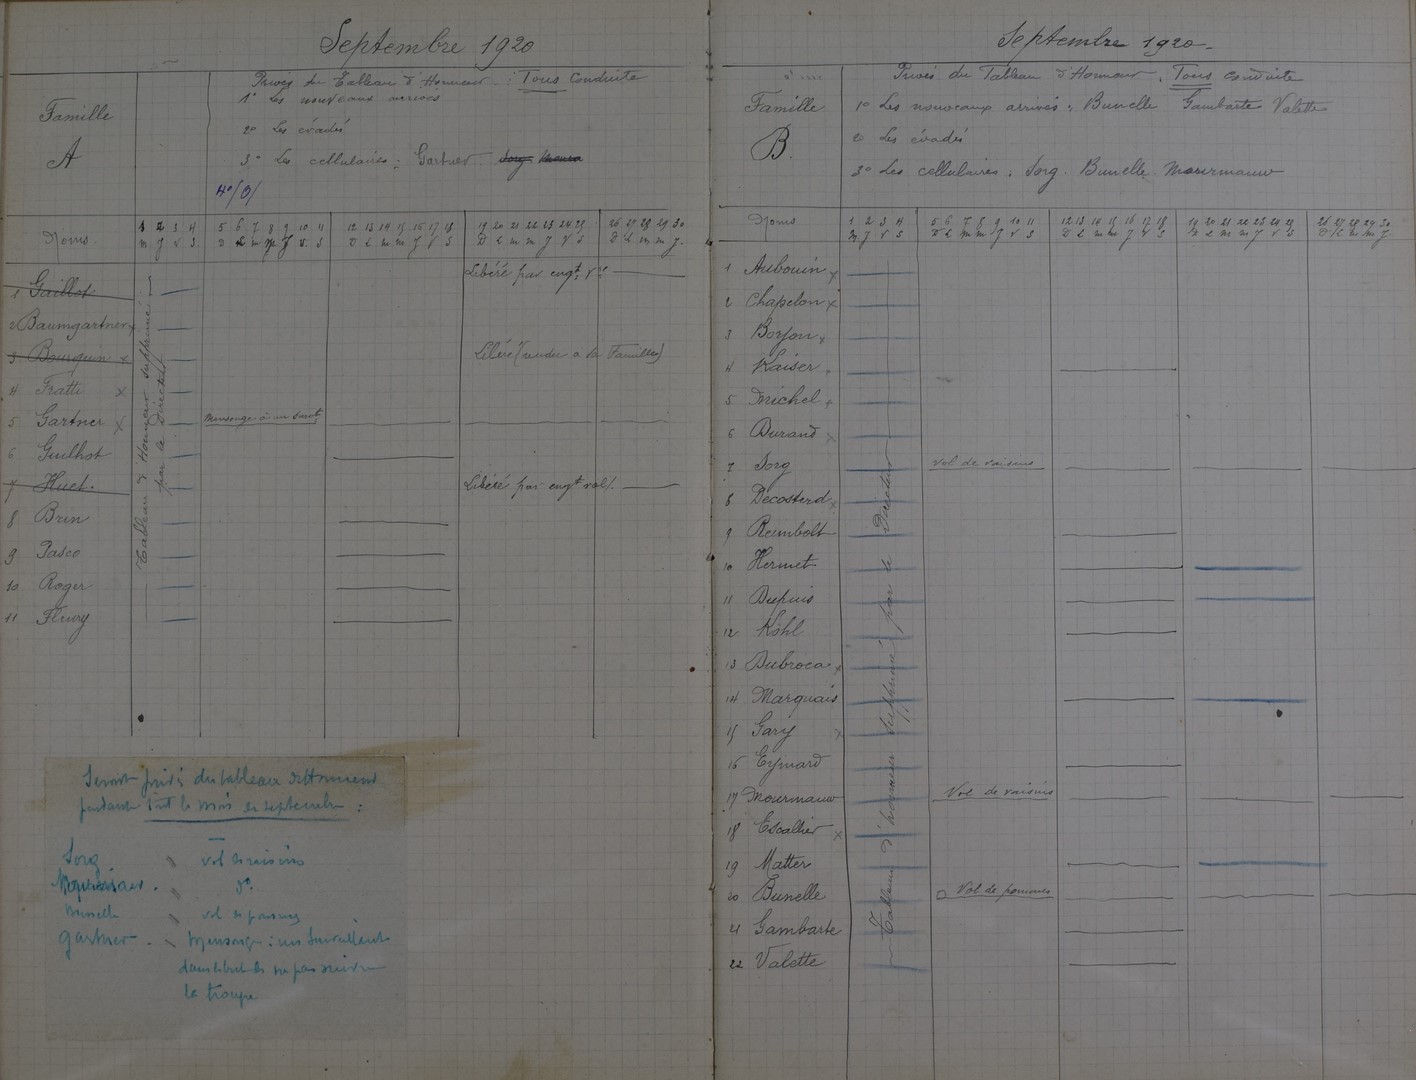 Septembre 1920
Famille
A
Privés du Tableau d'Honneur : Tous Conduite
1° Les nouveaux arrivés
2° Les évadés
3° Les cellulaires : Gartner Sorg
4°/
Noms
1 2 3 4 5 6 7 8 9 10 11 12 13 14 15 16 17 18 19 20 21 22 23 24 25 26 27 28 29 30
m J V S D L m m J V S D L m m J V S D L m m J V S D L m m J
Tableau d'Honneur supprimé
par le Directeur
1 Gaillot Libéré par engt vre
2 Baumgartner x
3 Bourquin x Libéré (rendu à la Famille)
4 Fratti x
5 Gartner x Mensonge à un survt
6 Guilhot
7 Huet Libéré par engt vol.
8 Bren
9 Pasco
10 Roger
11 Fleury
Seront privés du tableau d'honneur
pendant tout le mois de septembre :
Sorg " vol de raisins
. " d°
Bunelle " vol de pommes
Gartner . " Mensonge : un surveillant
dans le but de ne pas suivre
la troupe
Septembre 1920
Famille
B.
Privés du Tableau d'Honneur : Tous conduite
1° Les nouveaux arrivés : Bunelle Gambarte Valette
2 Les évadés
3° Les cellulaires : Sorg. Bunelle Mourmauw
Noms
1 2 3 4 5 6 7 8 9 10 11 12 13 14 15 16 17 18 19 20 21 22 23 24 25 26 27 28 29 30
m J V S D L m m J V S D L m m J V S D L m m J V S D L m m J
Tableau d'honneur supprimé par le Directeur
1 Aubouin x
2 Chapelon x
3 Borjon x
4 Kaiser
5 Michel x
6 Durand x
7 Sorg vol de raisins
8 Décosterd x
9 Rembolt
10 Hermet
11 Dupuis
12 Kohl
13 Dubroca x
14 Marquais
15 Gary x
16 Eymard
17 Mourmauw Vol de raisins
18 Escallier x
19 Matter
20 Bunelle Vol de pommes
21 Gambarte
22 Valette